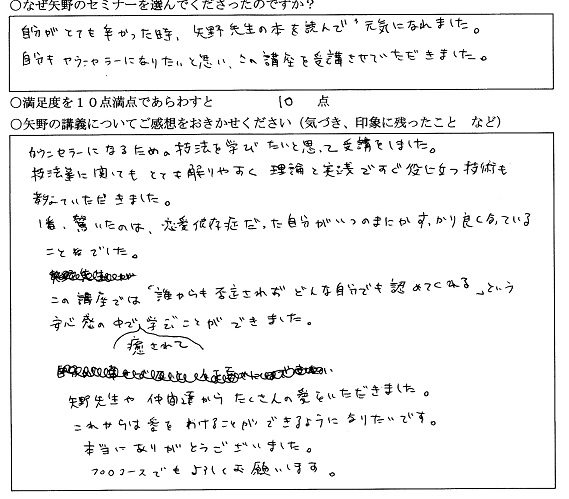 ○なぜ矢野のセミナーを選んでくださったのですか？
自分がとても辛かった時、矢野先生の本を読んで元気になれました。
自分もカウンセラーになりたいと思い、この講座を受講させていただきました。
○満足度を１０点満点であらわすと　10　点
○矢野の講義についてご感想をおきかせください（気づき、印象に残ったこと　など）
カウンセラーになるための技法を学びたいと思って受講をしました。
技法等に関してもとても解りやすく理論と実践ですぐ役に立つ技術も
教えていただきました。
1番、驚いたのは、恋愛依存症だった自分がいつのまにかすっかり良くなっている
ことでした。
この講座では「誰からも否定されずどんな自分でも認めてくれる」という
安心感の中で学ぶことができました。
癒されて
矢野先生や仲間達からたくさんの愛をいただきました。
これからは愛をわけることができるようになりたいです。
本当にありがとうございました。
プロコースでもよろしくお願いします。